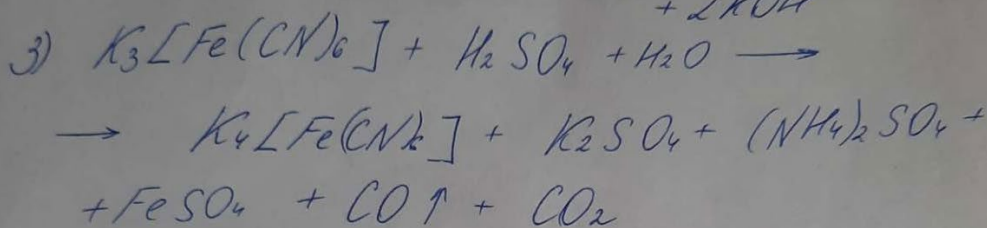 + 2KOH
3) K₃[Fe(CN)₆] + H₂SO₄ + H₂O ⟶
⟶ K₄[Fe(CN)₆] + K₂SO₄ + (NH₄)₂SO₄ +
+ FeSO₄ + CO↑ + CO₂